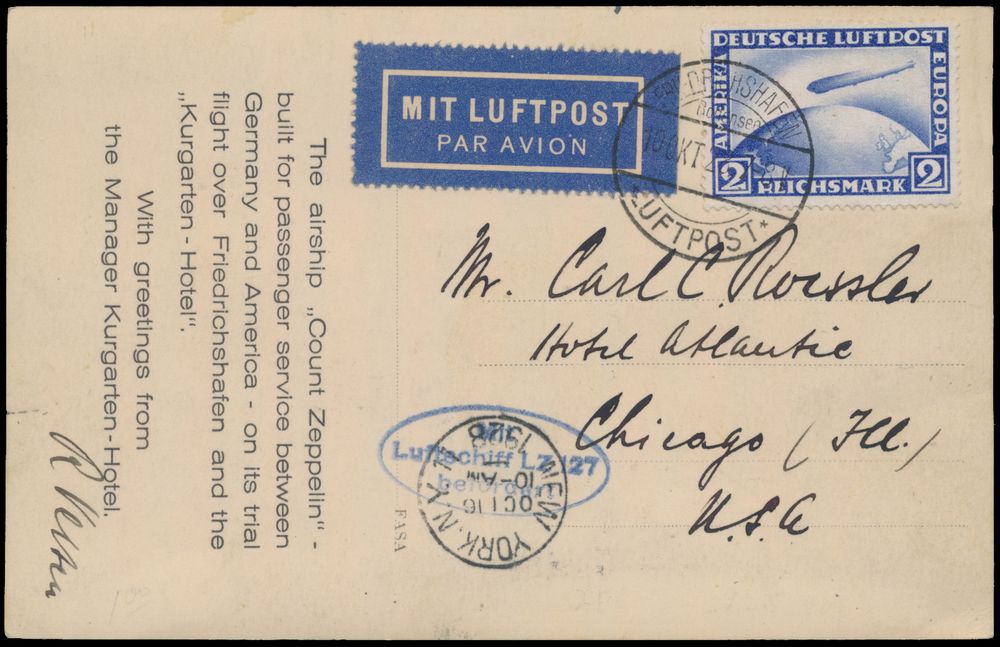 The airship „Count Zeppelin“ -
built for passenger service between
Germany and America - on its trial
flight over Friedrichshafen and the
„Kurgarten-Hotel“.
With greetings from
the Manager Kurgarten-Hotel.
MIT LUFTPOST
PAR AVION
DEUTSCHE LUFTPOST
AMERIKA
EUROPA
2 REICHSMARK 2
FRIEDRICHSHAFEN
Bodensee
10 OKT
*LUFTPOST*
Mr. Carl C. Roessler
Hotel Atlantic
Chicago (Ill.)
U.S.A
Mit
Luftschiff LZ 127
befördert
NEW YORK, N.Y.
OCT 16
10-AM
1928
FASA